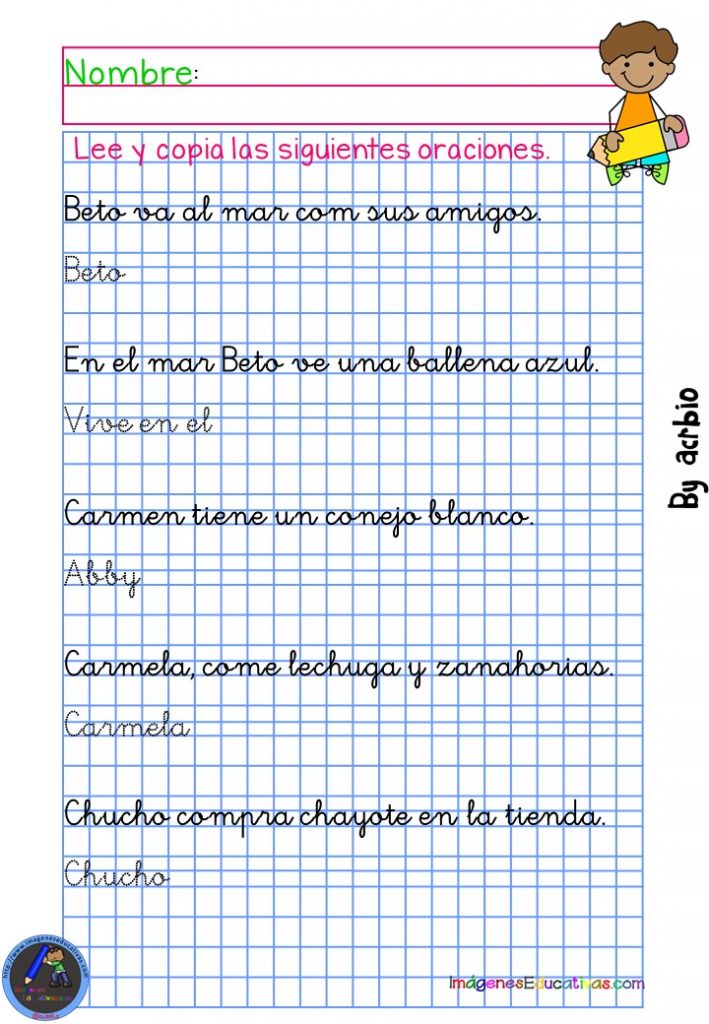 Nombre:
Lee y copia las siguientes oraciones.
Beto va al mar com sus amigos.
Beto
En el mar Beto ve una ballena azul.
Vive en el
By acrbio
Carmen tiene un conejo blanco.
Abby
Carmela, come lechuga y zanahorias.
Carmela
Chucho compra chayote en la tienda.
Chucho
http://www.imageneseducativas.com
ImágenesEducativas.com